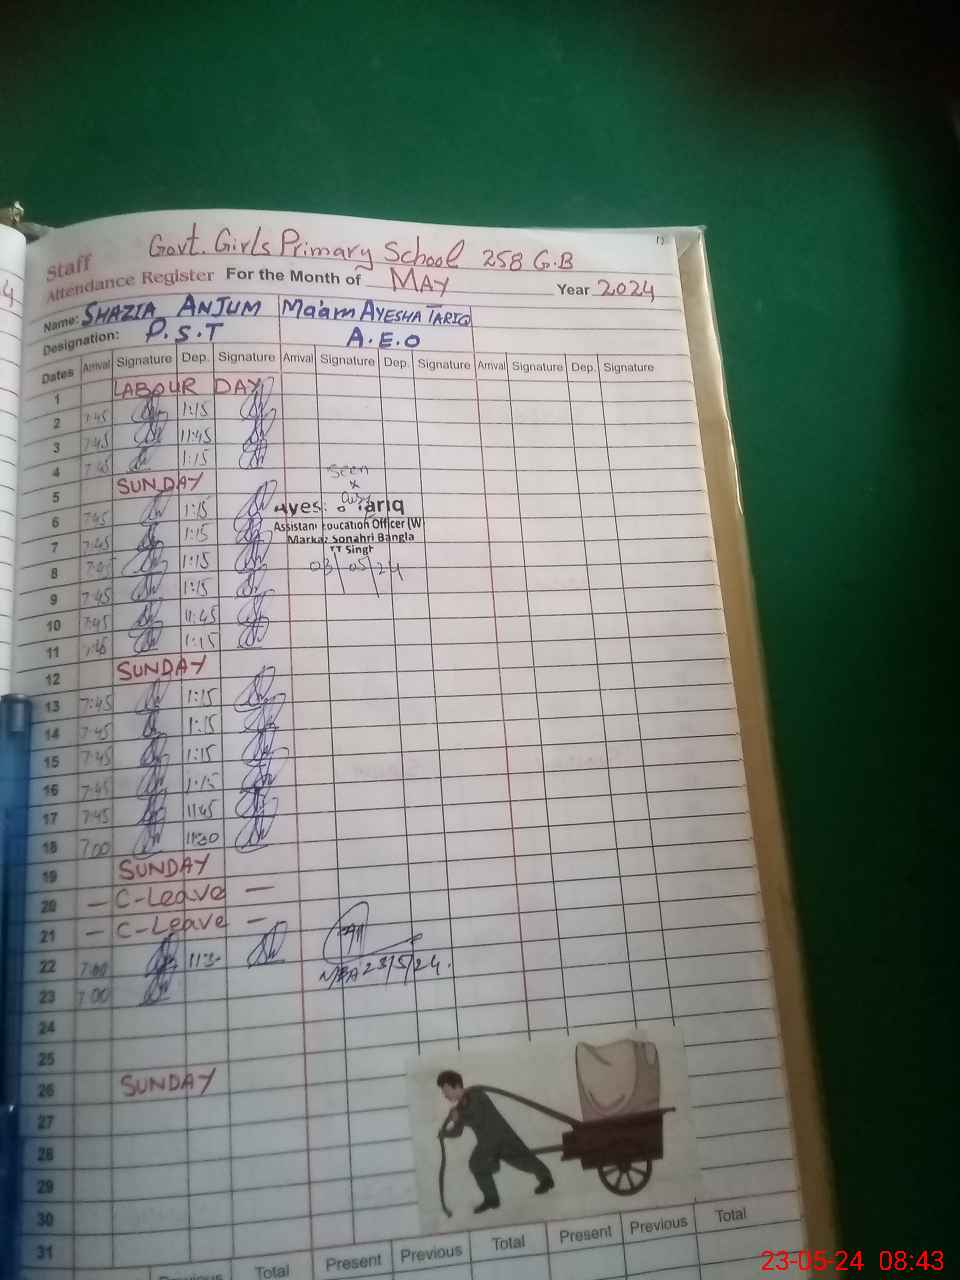 4
12
Govt. Girls Primary School 258 G.B
Staff
Attendance Register For the Month of MAY Year 2024
Name: SHAZIA ANJUM Ma'am AYESHA TARIQ
Designation: P.S.T A.E.O
Dates Arrival Signature Dep. Signature Arrival Signature Dep. Signature Arrival Signature Dep. Signature
1 LABOUR DAY
2 7:45 1:15
3 7:45 11:45
4 7:45 1:15
5 SUNDAY
6 7:45 1:15
7 7:45 1:15
8 7:45 1:15
9 7:45 1:15
10 7:45 11:45
11 7:45 1:15
12 SUNDAY
13 7:45 1:15
14 7:45 1:15
15 7:45 1:15
16 7:45 1:15
17 7:45 11:45
18 7:00 11:30
19 SUNDAY
20 — C-Leave —
21 — C-Leave —
22 7:00 11:3-
23 7:00
24
25
26 SUNDAY
27
28
29
30
31
Seen
Tariq
Assistant Education Officer (W
Markaz Sonahri Bangla
TT Singh
03/05/24
23/5/24.
Previous Total Present Previous Total Present Previous Total
23-05-24 08:43